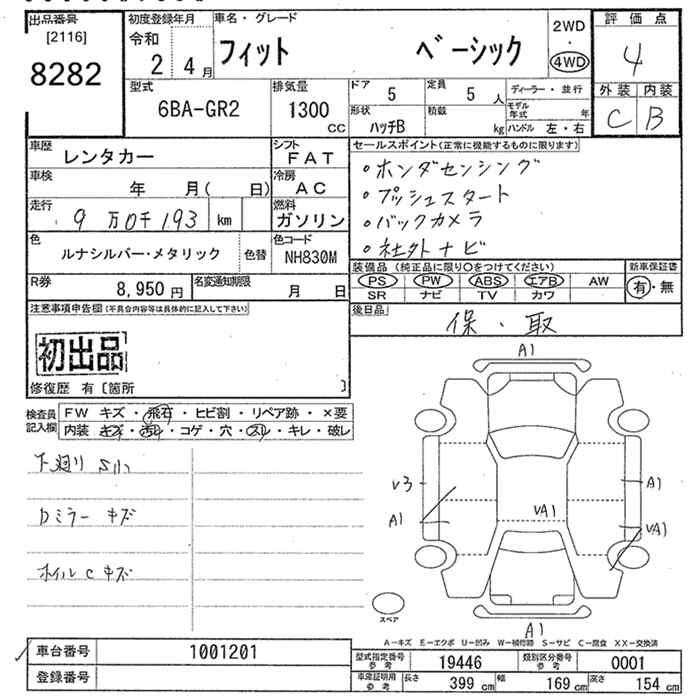 出品番号
[2116]
8282
初度登録年月
令和
2 4月
車名・グレード
フィット ベーシック
2WD
・
4WD
評価点
4
外装 内装
C B
型式
6BA-GR2
排気量
1300
CC
ドア
5
定員
5人
ディーラー・並行
形状
ハッチB
積載
kg
モデル年式 年
ハンドル 左・右
車歴
レンタカー
シフト
FAT
車検
年 月( 日)
冷房
AC
走行
9万0千193 km
燃料
ガソリン
色
ルナシルバー・メタリック
色替
色コード
NH830M
R券
8,950円
名変通知期限
月 日
セールスポイント(正常に機能するものに限ります)
・ホンダセンシング
・プッシュスタート
・バックカメラ
・社外ナビ
装備品 (純正品に限り○をつけてください)
PS PW ABS エアB AW
SR ナビ TV カワ
新車保証書
有・無
後日品
保・取
注意事項申告欄(不具合内容等は具体的に記入して下さい)
初出品
修復歴 有〔箇所 〕
検査員
記入欄
FW キズ・飛石・ヒビ割・リペア跡・×要
内装 キズ・汚レ・コゲ・穴・スレ・キレ・破レ
下廻り S小
Dミラー キズ
ホイルC キズ
A1
V3
A1
VA1
A1
VA1
A1
スペア
A-キズ E-エクボ U-凹み W-補修跡 S-サビ C-腐食 XX-交換済
車台番号
1001201
登録番号
型式指定番号
参考
19446
類別区分番号
参考
0001
車庫証明用
参考
長さ 399cm 幅 169cm 高さ 154cm